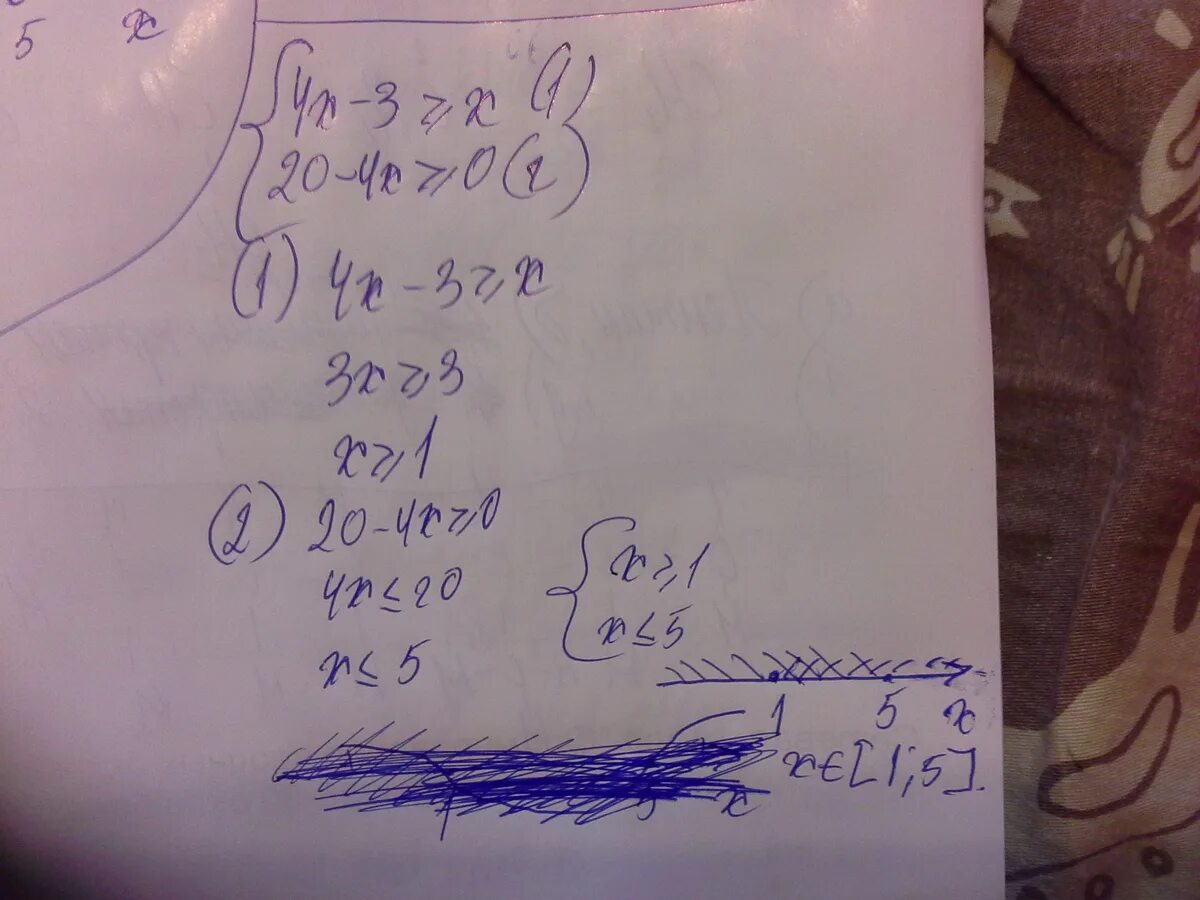 5 x
{ 4x-3 ≥ x (1)
20-4x ≥ 0 (2)
(1) 4x-3 ≥ x
3x ≥ 3
x ≥ 1
(2) 20-4x ≥ 0
4x ≤ 20
x ≤ 5
{ x ≥ 1
x ≤ 5
1 5 x
x∈[1;5].
x